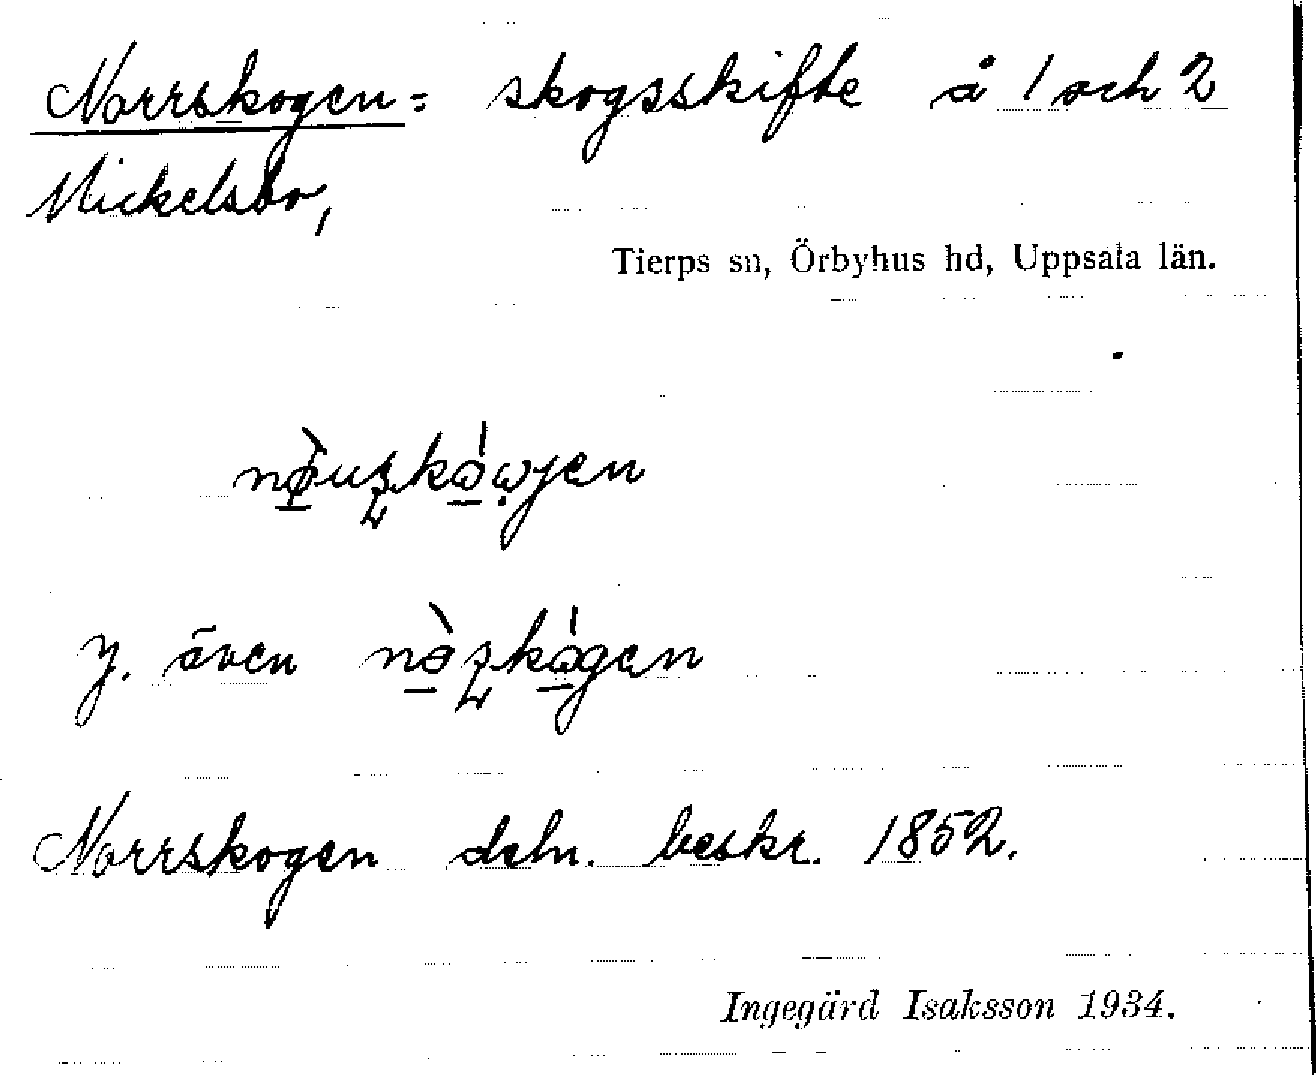 Norrskogen = skogsskifte å 1 och 2
Mickelsbo,
Tierps sn, Örbyhus hd, Uppsala län.
y. även
Norrskogen deln. beskr. 1852.
Ingegärd Isaksson 1934.